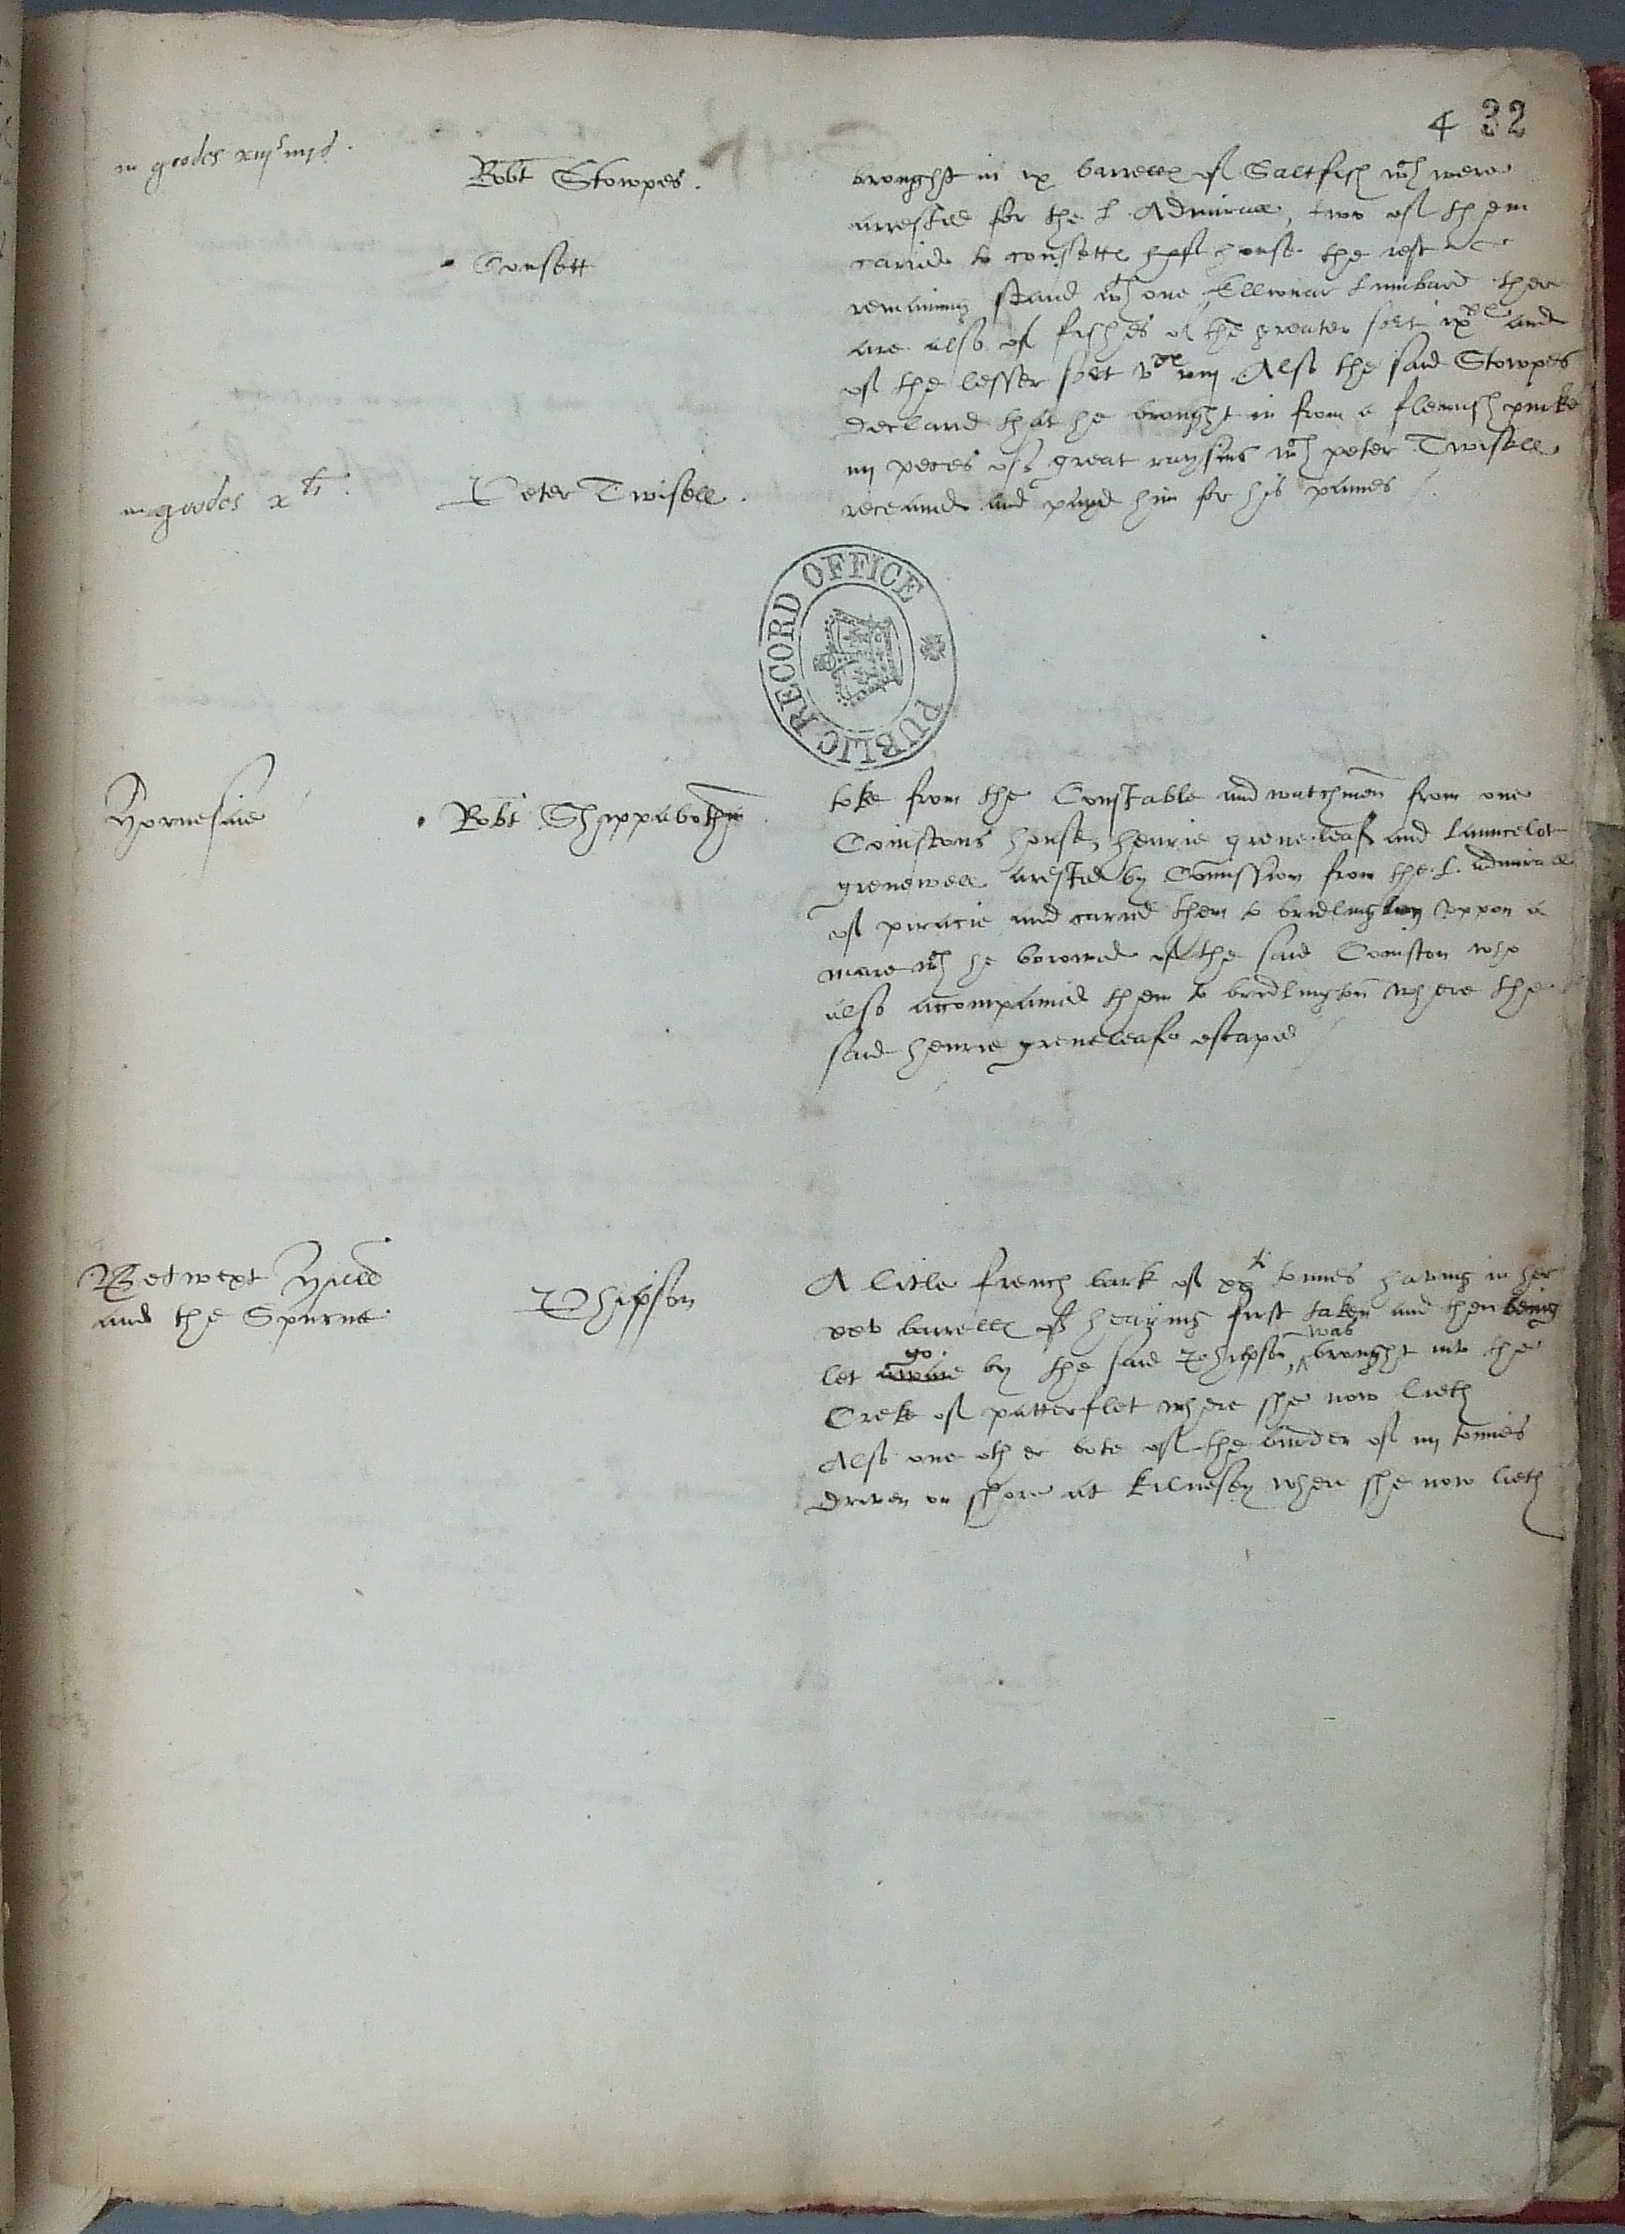 4 32
in goodes xiijs iiijd.
Robt Stowpes.
brought in ix barrells of Saltfish wch were
arrested for the L Admirall, two of them
caried to consetts house the rest
Consett
remaining stand wth one Ellionar Lumbard ther
are also of fishes of the greater sort ixxx and
of the lesser sort vxx viij Also the said Stowpes
declared that he brought in from a flemish pinke
in goodes xli.
Peter Twisell.
iiij peces of great raysins wch peter Twisell
receaved and payed him for his paines
PUBLIC RECORD OFFICE
Hornesaie
Robt Shippabothm
toke from the Constable and watchmen from one
Coinstons house, henrie greneleaf and Launcelot
grenewell arested by Comission from the L. admirall
of piracie and caried them to bridlington uppon a
mare wch he borowed of the said Coinston who
also accompanied them to bridlington where the
said henrie greneleafe escaped
Betwext Hull
and the Spurne
Phipson
A litle french bark of xxti tonnes having in her
xxv barrells of hearing first taken and then being
let go by the said Phipson, was brought into the
Creke of patterflet where she now lieth
Also one other bote of the burden of iiij tonnes
driven on shore at Kilnesey where she now lieth